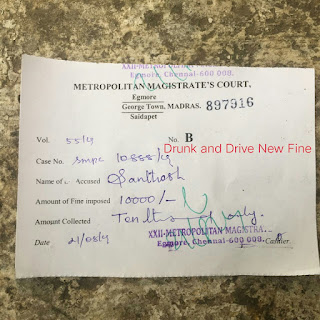 XXII-METROPOLITAN MAGISTRA
Egmore, Chennai-600 008.
METROPOLITAN MAGISTRATE'S COURT,
Egmore
George Town, MADRAS. 897916
Saidapet
Vol. 55/19 No. B
Drunk and Drive New Fine
Case No. smpc 10888/19
Name of Accused Santhosh
Amount of Fine imposed 10000/-
Amount Collected Ten only.
XXII-METROPOLITAN MAGISTRA.
Date 21/09/19 Egmore, Chennai-600 008. Cashier.